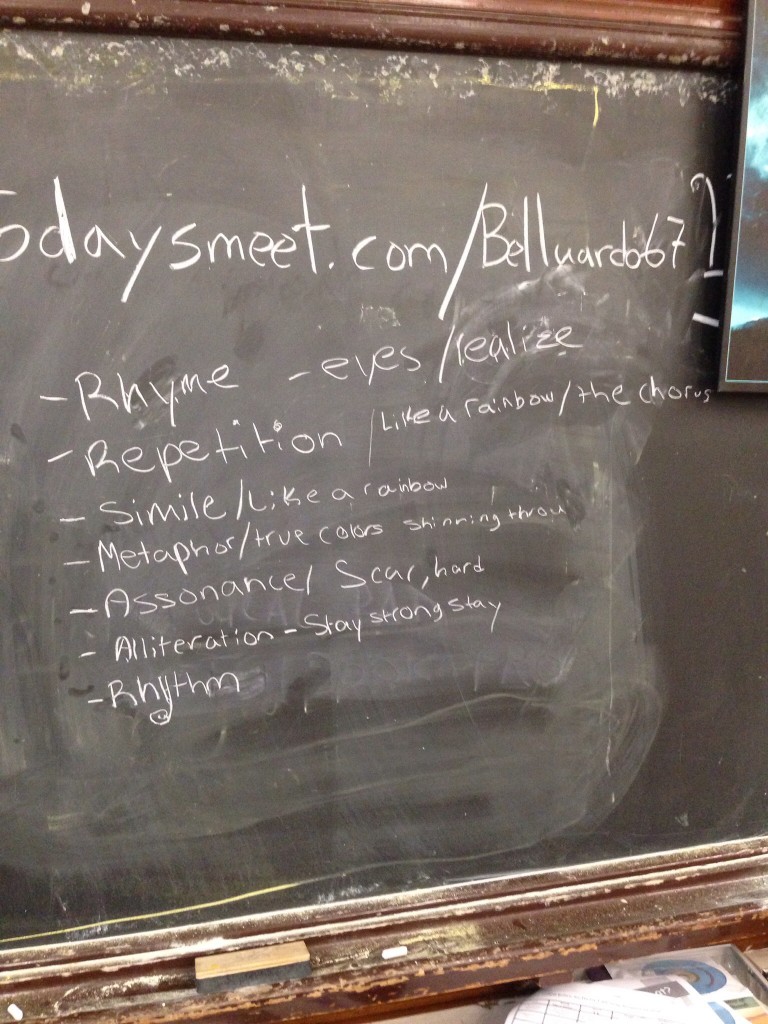 todaysmeet.com/Belluardo67
- Rhyme - eyes/realize
- Repetition / Like a rainbow/the chorus
- Simile/Like a rainbow
- Metaphor/true colors shinning throu
- Assonance/ Scar, hard
- Alliteration - Stay strong stay
- Rhythm